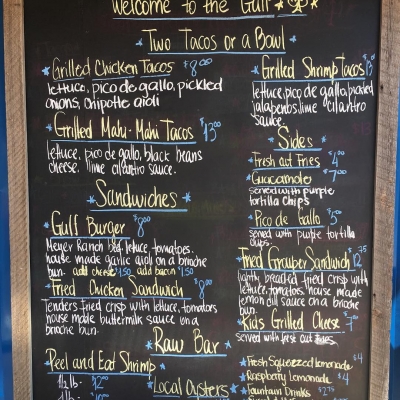 Welcome to the Gulf
Two Tacos or a Bowl
Grilled Chicken Tacos $8.00
lettuce, pico de gallo, pickled
onions, chipotle aioli
Grilled Mahi-Mahi Tacos $13.00
lettuce, pico de gallo, black beans
cheese. lime cilantro sauce.
Sandwiches
Gulf Burger $8.00
Meyer Ranch beef, lettuce, tomatoes.
house made garlic aioli on a brioche
bun. add cheese $1.50 add bacon $1.50
Fried Chicken Sandwich $8.00
Tenders fried crisp with lettuce, tomatoes
house made buttermilk sauce on a
brioche bun.
Raw Bar
Peel and Eat Shrimp
1/2 lb. $12.00
Local Oysters
Grilled Shrimp Tacos $13
lettuce, pico de gallo, pickled
jalapeños, lime cilantro
sauce.
Sides
Fresh cut Fries $4.00
Guacamole $7.00
served with purple
tortilla chips
Pico de Gallo $5.00
served with purple tortilla
chips
Fried Grouper Sandwich $12.75
lightly breaded fried crisp with
lettuce, tomatoes. house made
lemon dill sauce on a brioche
bun.
Kids Grilled Cheese $7.00
served with fresh cut fries
Fresh Squeezed lemonade $4
Raspberry Lemonade $4
Fountain Drinks $2.75